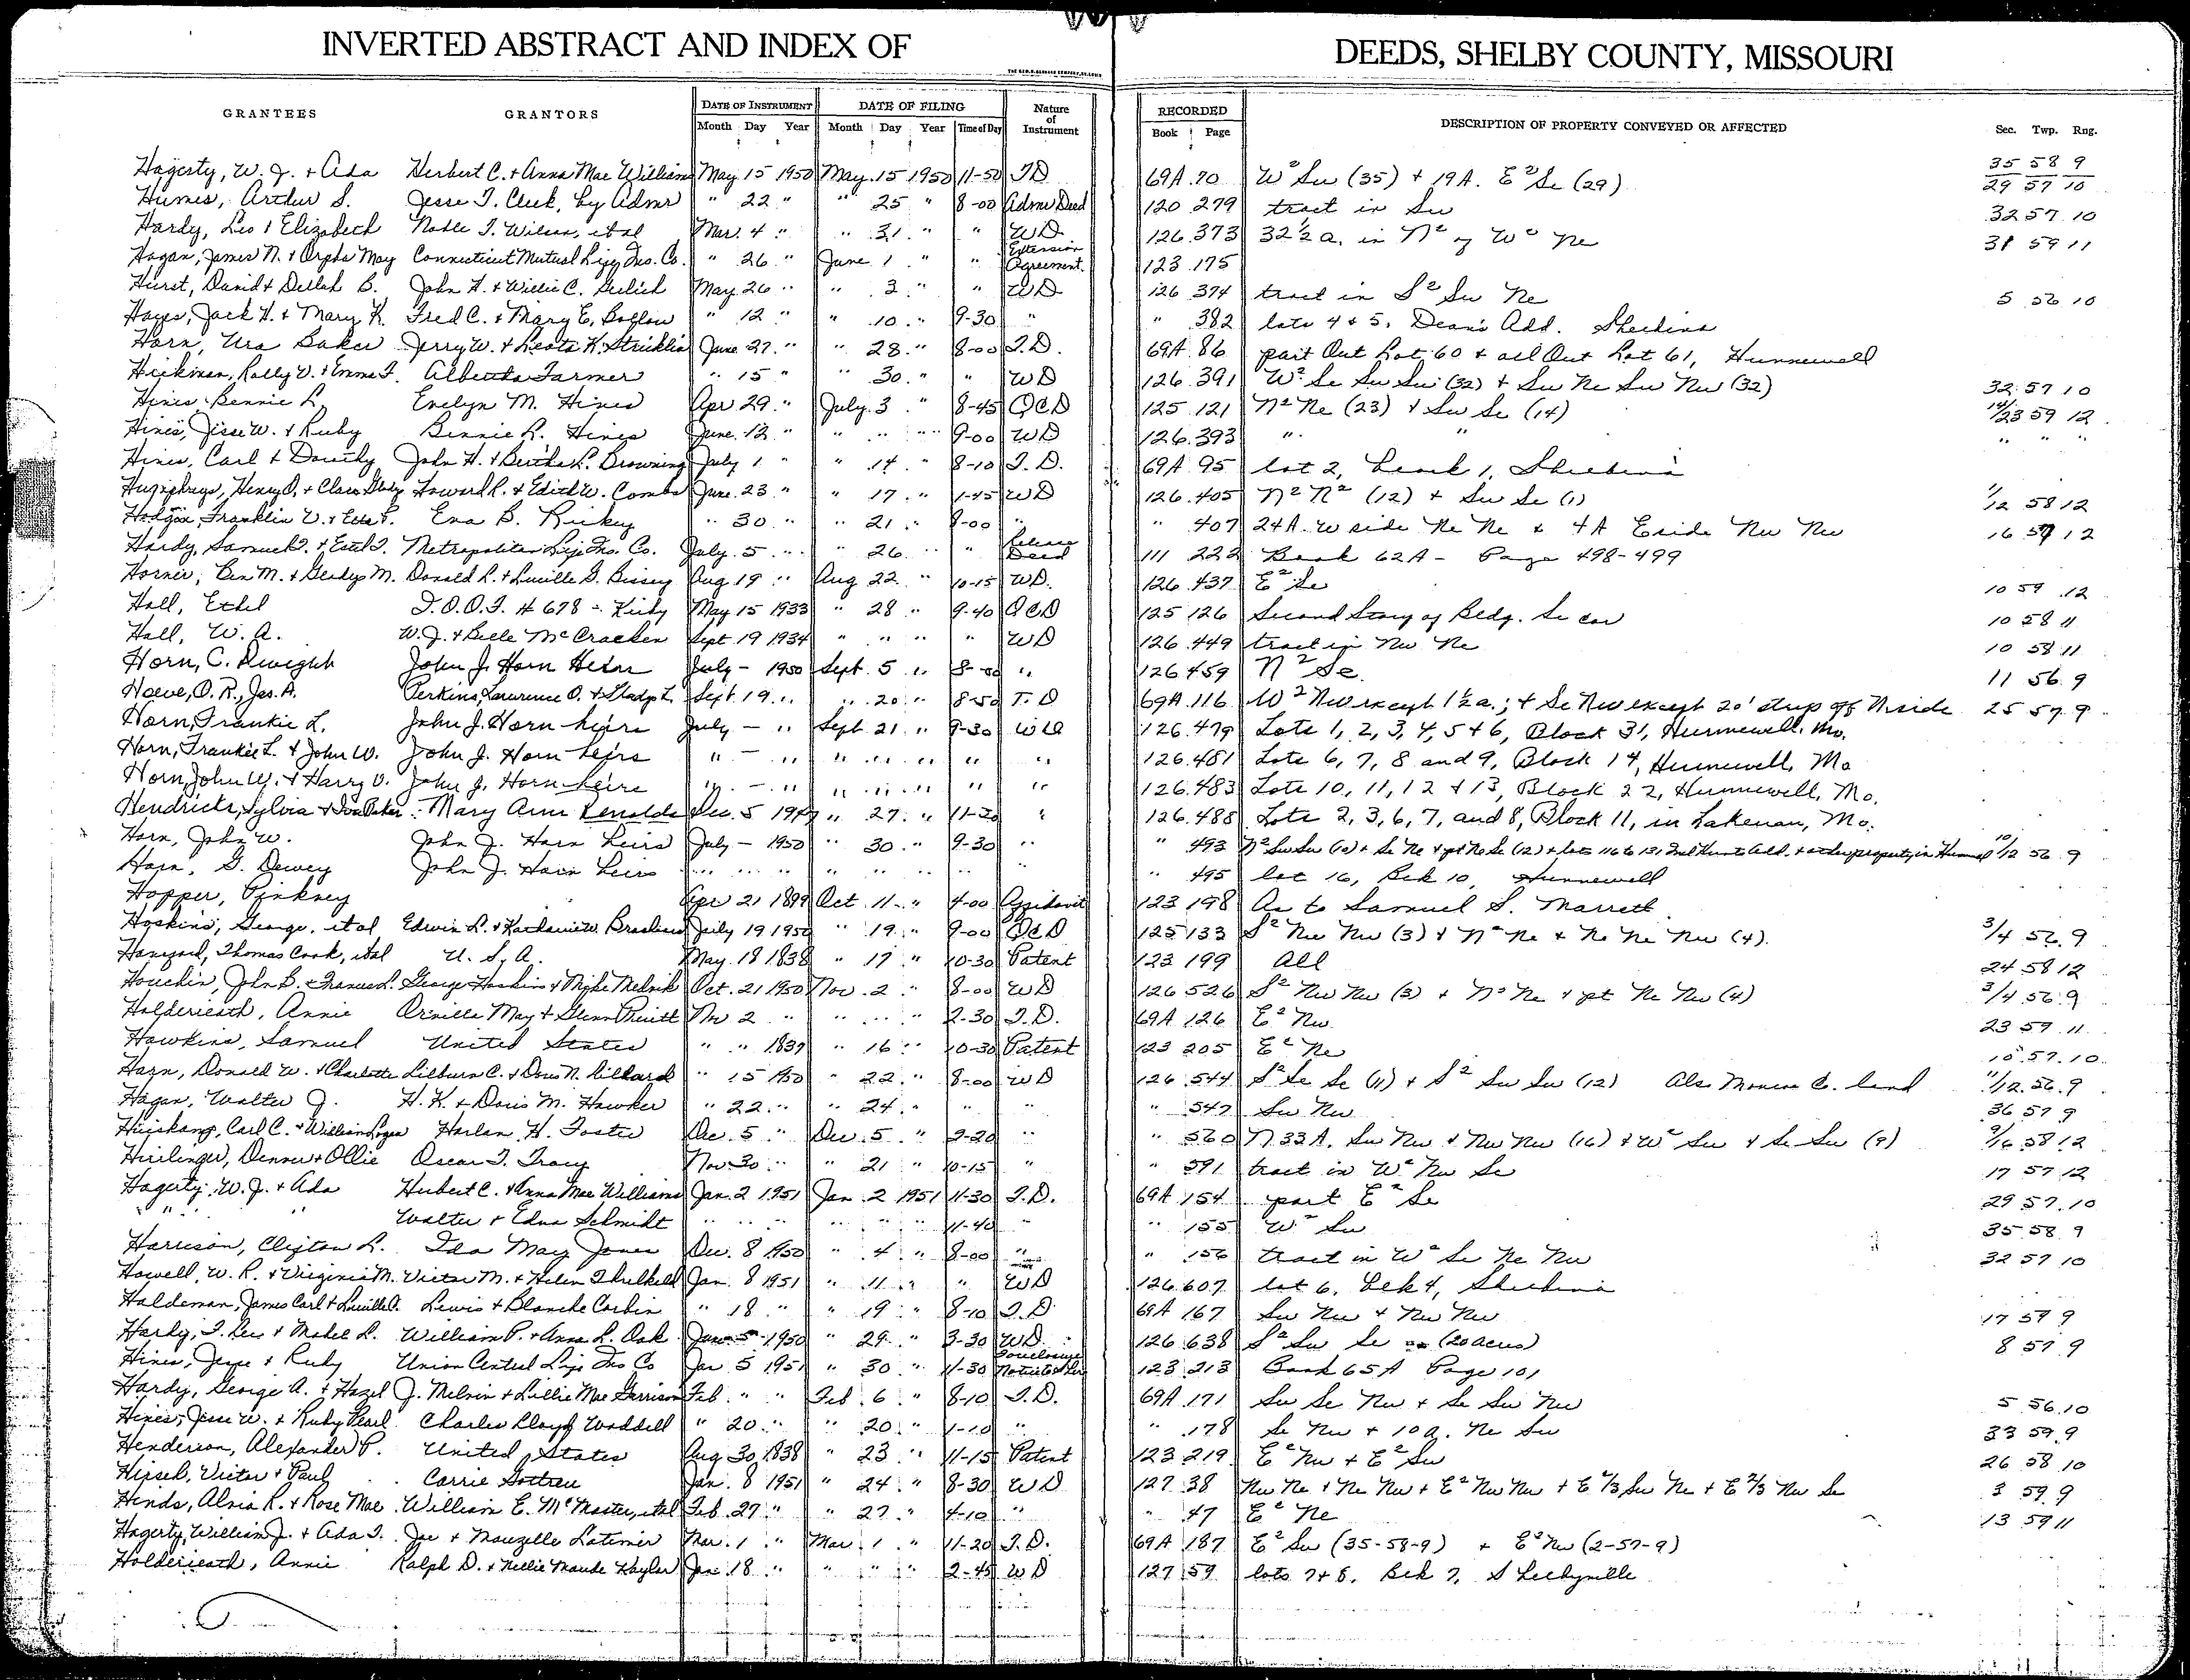 INVERTED ABSTRACT AND INDEX OF DEEDS, SHELBY COUNTY, MISSOURI
GRANTEES GRANTORS DATE OF INSTRUMENT DATE OF FILING Nature of Instrument RECORDED DESCRIPTION OF PROPERTY CONVEYED OR AFFECTED Sec. Twp. Rng.
Month Day Year Month Day Year Time of Day Book Page
Hagerty, W. J. + Ada Herbert C. + Anna Mae Williams May 15 1950 May 15 1950 11-50 T.D 69A 70 W² Sw (35) + 19A. E² Se (29) 35 58 9 29 57 10
Humes, Arthur S. Jesse T. Cleek, by Admr " 22 " " 25 " 8-00 Adms Deed 120 279 tract in Sw 32 57 10
Hardy, Leo + Elizabeth Noble T. Wilson, et al Mar. 4 " " 31 " " WD 126 373 32½ a. in N² of W² Ne 31 59 11
Hagan, James N. + Orpha May Connecticut Mutual Life Ins. Co. " 26 " June 1 " " Extension Agreement. 123 175
Hurst, David + Dellah B. John H. + Willie C. May 26 " " 3 " " WD 126 374 tract in S² Sw Ne 5 56 10
Hayes, Jack H. + Mary K. Fred C. + Mary E. " 12 " " 10 " 9-30 " " 382 lots 4 + 5, Dean's Add. Shelbina
Horn, Ura Baker Jerry W. + Leota K. Stricklin June 27 " " 28 " 8-00 T.D. 69A 86 part Out Lot 60 + all Out Lot 61, Hunnewell
Hickman, Rolly V. + Emma F. Alberta Farmer " 15 " " 30 " " WD 126 391 W² Se Sw Sw (32) + Sw Ne Sw Nw (32) 32 57 10
Hines Bennie L. Evelyn M. Hines Apr 29 " July 3 " 8-45 QCD 125 121 N² Ne (23) + Sw Se (14) 14/23 59 12
Hines, Jesse W. + Ruby Bennie L. Hines June 12 " " " " 9-00 WD 126 393 " " " " "
Hines, Carl + Dorothy John H. + Bertha L. Browning July 1 " " 14 " 8-10 T.D. 69A 95 lot 2, Block 1, Shelbina
Humphreys, Henry O. + Clara Howard R. + Edith W. Combs June 23 " " 17 " 1-45 WD 126 405 N² N² (12) + Sw Se (1) 1/12 58 12
Hodgson Franklin V. + Etta F. Eva B. Rickey " 30 " " 21 " 8-00 " " 407 24A. W side Ne Ne & 4A E side Nw Nw 16 57 12
Hardy, Samuel + Metropolitan Life Ins. Co. July 5 " " 26 " " Release Deed 111 222 Book 62A - Page 498-499
Horner, Ben M. + Gladys M. Donald R. + Lucille G. Bissey Aug 19 " Aug 22 " 10-15 WD. 126 437 E² Se 10 59 12
Hall, Ethel I.O.O.F. # 678 - Kirby May 15 1933 " 28 " 9-40 QCD 125 126 Second Story of Bldg. Se cor 10 58 11
Hall, W. A. W. J. + Belle McCracken Sept 19 1934 " " " " WD 126 449 tract in Nw Ne 10 58 11
Horn, C. Dwight John J. Horn Heirs July - 1950 Sept. 5 " 8-00 " 126 459 N² Se. 11 56 9
Hoeve, O. R., Jas. A. Perkins, Lawrence O. + Gladys L. Sept 19 " " 20 " 8-50 T.D 69A 116 W² Nw except 1½ a.; + Se Nw except 20' strip off N side 25 57 9
Horn, Frankie L. John J. Horn heirs July - " Sept. 21 " 9-30 W D 126 479 Lots 1, 2, 3, 4, 5 + 6, Block 31, Hunnewell, Mo.
Horn, Frankie L. + John W. John J. Horn heirs " - " " " " " " 126 481 Lots 6, 7, 8 and 9, Block 14, Hunnewell, Mo
Horn, John W. + Harry V. John J. Horn heirs " - " " " " " " 126 483 Lots 10, 11, 12 + 13, Block 22, Hunnewell, Mo.
Hendricks, Sylvia + Mary Ann Renolds Dec. 5 1947 " 27 " 11-30 " 126 488 Lots 2, 3, 6, 7, and 8, Block 11, in Lakenan, Mo.
Horn, John W. John J. Horn Heirs July - 1950 " 30 " 9-30 " " 493 N² Sw Sw (10) + Se Ne + pt Ne Se (12) + lots 116 to 131 + other property in 10/12 56 9
Horn, G. Dewey John J. Horn Heirs " " " " " " " " " 495 lot 16, Bek 10, Hunnewell
Hopper, Pinkney Apr 21 1899 Oct 11 " 4-00 Affidavit 123 198 As to Samuel S. Marrett
Hoskins, George, et al, Edwin L. + Katharine W. July 19 1950 " 19 " 9-00 QCD 125 133 S² Nw Nw (3) + N² Ne + Ne Ne Nw (4). 3/4 56 9
Thomas Cook, et al U. S. A. May 18 1838 " 17 " 10-30 Patent 123 199 All 24 58 12
Houchin, John B. + Frances L. George Hoskins + Mike Melnik Oct. 21 1950 Nov. 2 " 8-00 WD 126 526 S² Nw Nw (3) + N² Ne + pt Ne Nw (4) 3/4 56 9
Holderieath, Annie Orville May + Glenn Pruitt Nov 2 " " " " 2-30 T.D. 69A 126 E² Nw. 23 59 11
Hawkins, Samuel United States " " 1839 " 16 " 10-30 Patent 123 205 E² Ne 10 57 10
Horn, Donald W. + Charlotte Lilburn C. + Doris N. " 15 1950 " 22 " 8-00 WD 126 544 S² Se Se (11) + S² Sw Sw (12) Also Monroe Co. land 11/12 56 9
Hagan, Walter J. H. K. + Doris M. Hawker " 22 " " 24 " " " " 547 Sw Nw 36 57 9
Huiskamp, Carl C. + William Logan Harlan H. Foster Dec. 5 " Dec. 5 " 2-20 " " 560 N. 33 A. Sw Nw + Nw Nw (16) + W² Sw + Se Sw (9) 9/16 58 12
Hirlinger, Denver + Ollie Oscar T. Tracy Nov 30 " " 21 " 10-15 " " 591 tract in W² Nw Se 17 57 12
Hagerty, W. J. + Ada Hubert C. + Anna Mae Williams Jan. 2 1951 Jan 2 1951 11-30 T.D. 69A 154 part E² Se 29 57 10
" " " Walter + Edna Schmidt " " " " " " 11-40 " " 155 W² Sw 35 58 9
Harrison, Clifton L. Ida May Jones Dec. 8 1950 " 4 " 8-00 " " 156 tract in W² Se Ne Nw 32 57 10
Howell, W. R. + Virginia M. Victor M. + Helen Threlkeld Jan. 8 1951 " 11 " " WD 126 607 lot 6, Bek 4, Shelbina
Haldeman, James Carl + Lucille A. Lewis + Blanche Corbin " 18 " " 19 " 8-10 T.D. 69A 167 Sw Nw + Nw Nw 17 59 9
Hardy, T. Leo + Mabel L. William P. + Anna L. Oak June 5 1950 " 29 " 3-30 WD. 126 638 S² Sw Se (20 acres) 8 57 9
Hines, Jesse + Ruby Union Central Life Ins Co Jan 5 1951 " 30 " 11-30 Foreclosure 123 213 Book 65A Page 101
Hardy, George A. + Hazel J. Melvin + Lillie Mae Garrison Feb " " Feb. 6 " 8-10 T.D. 69A 171 Sw Se Nw + Se Sw Nw 5 56 10
Hines, Jesse W. + Ruby Pearl Charles Lloyd Waddell " 20 " " 20 " 1-10 " " 178 Se Nw + 10 a. Ne Sw 33 59 9
Henderson, Alexander P. United States Aug 30 1838 " 23 " 11-15 Patent 123 219 E² Nw + E² Sw 26 58 10
Hirsch, Victor + Paul Carrie Gottreu Jan. 8 1951 " 24 " 8-30 WD 127 38 Nw Ne + Ne Nw + E² Nw Nw + E ⅔ Sw Ne + E ⅔ Nw Se 3 59 9
Hinds, Alvia R. + Rose Mae William E. McMaster, et al Feb. 27 " " 27 " 4-10 " " 47 E² Ne 13 59 11
Hagerty, William J. + Ada T. Joe + Mauzelle Latimer Mar. 1 " Mar 1 " 11-20 T.D. 69A 187 E² Sw (35-58-9) + E² Nw (2-57-9)
Holderieath, Annie Ralph D. + Nellie Maude Kaylor Jan. 18 " " " " 2-45 WD 127 59 lots 7 + 8, Bek 7, Shelbyville